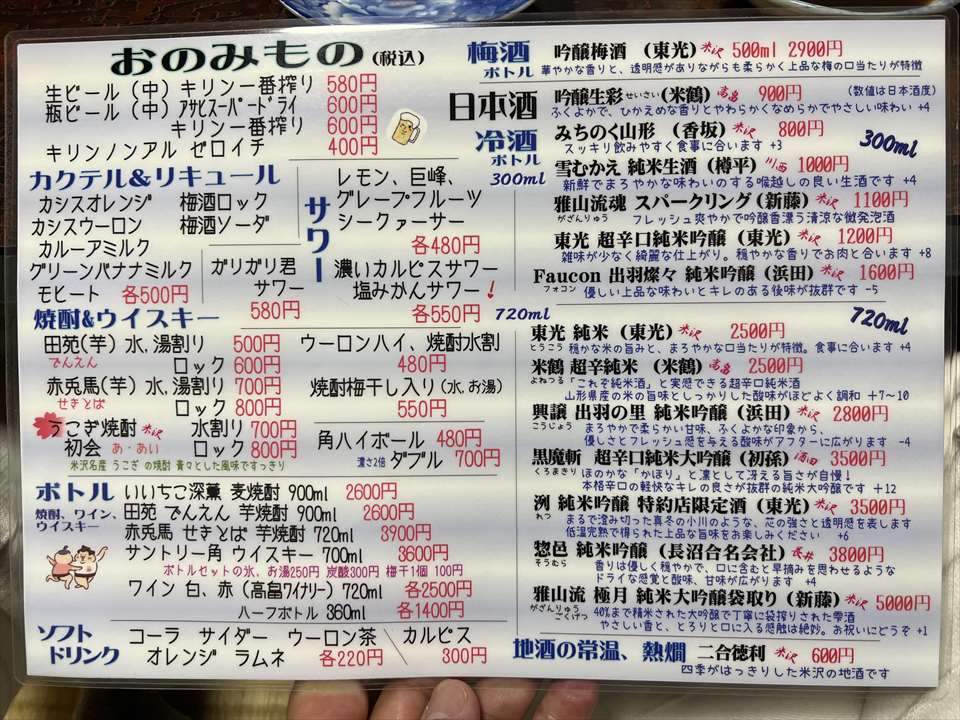 おのみもの (税込)
生ビール (中) キリン一番搾り 580円
瓶ビール (中) アサヒスーパードライ 600円
キリン一番搾り 600円
キリンノンアル ゼロイチ 400円
カクテル&リキュール
カシスオレンジ 梅酒ロック
カシスウーロン 梅酒ソーダ
カルーアミルク
グリーンバナナミルク
モヒート 各500円
ガリガリ君
サワー
580円
サワー
レモン、巨峰、
グレープフルーツ
シークァーサー
各480円
濃いカルピスサワー
塩みかんサワー!
各550円
焼酎&ウイスキー
田苑(芋) 水,湯割り 500円
でんえん ロック 600円
赤兎馬(芋) 水,湯割り 700円
せきとば ロック 800円
うこぎ焼酎 米沢 水割り 700円
初会 あ・あい ロック 800円
米沢名産 うこぎ の焼酎 青々とした風味ですっきり
ウーロンハイ、焼酎水割
480円
焼酎梅干し入り(水,お湯)
550円
角ハイボール 480円
濃さ2倍 ダブル 700円
ボトル
焼酎、ワイン、
ウイスキー
いいちこ深薫 麦焼酎 900ml 2600円
田苑 でんえん 芋焼酎 900ml 2600円
赤兎馬 せきとば 芋焼酎 720ml 3900円
サントリー角 ウイスキー 700ml 3600円
ボトルセットの氷、お湯250円 炭酸300円 梅干1個 100円
ワイン 白、赤 (高畠ワイナリー) 720ml 各2500円
ハーフボトル 360ml 各1400円
ソフト
ドリンク
コーラ サイダー ウーロン茶
オレンジ ラムネ 各220円
カルピス
300円
梅酒
ボトル
吟醸梅酒 (東光) 米沢 500ml 2900円
華やかな香りと、透明感がありながらも柔らかく上品な梅の口当たりが特徴
日本酒
冷酒
ボトル
300ml
吟醸生彩 せいさい (米鶴) 高畠 900円 (数値は日本酒度)
ふくよかで、ひかえめな香りとやわらかくなめらかでやさしい味わい +4
みちのく山形 (香坂) 米沢 800円
スッキリ飲みやすく食事に合います +3
300ml
雪むかえ 純米生酒 (樽平) 川西 1000円
新鮮でまろやかな味わいのする喉越しの良い生酒です +4
雅山流魂 スパークリング(新藤) 米沢 1100円
がざんりゅう フレッシュ爽やかで吟醸香漂う清涼な微発泡酒
東光 超辛口純米吟醸 (東光) 米沢 1200円
雑味が少なく綺麗な仕上がり。穏やかな香りでお肉と合います +8
Faucon 出羽燦々 純米吟醸 (浜田) 米沢 1600円
フォコン 優しい上品な味わいとキレのある後味が抜群です -5
720ml
720ml
東光 純米 (東光) 米沢 2500円
とうこう 穏かな米の旨みと、まろやかな口当たりが特徴。食事に合います +4
米鶴 超辛純米 (米鶴) 高畠 2500円
よねつる 「これぞ純米酒」と実感できる超辛口純米酒
山形県産の米の旨味としっかりした酸味がほどよく調和 +7~10
興譲 出羽の里 純米吟醸 (浜田) 米沢 2800円
こうじょう まろやかで柔らかな甘味、ふくよかな印象から、
優しさとフレッシュ感を与える酸味がアフターに広がります -4
黒魔斬 超辛口純米大吟醸 (初孫) 酒田 3500円
くろまきり ほのかな「かほり」と凛として冴える旨さが自慢!
本格辛口の軽快なキレの良さが抜群の純米大吟醸です +12
洌 純米吟醸 特約店限定酒 (東光) 米沢 3500円
れつ まるで澄み切った真冬の小川のような、芯の強さと透明感を表します
低温完熟で得られた上品な旨味をお楽しみください +6
惣邑 純米吟醸 (長沼合名会社) 長井 3800円
そうむら 香りは優しく穏やかで、口に含むと早摘みを思わせるような
ドライな感覚と酸味、甘味が広がります +4
雅山流 極月 純米大吟醸袋取り (新藤) 米沢 5000円
がざんりゅう ごくげつ 40%まで精米された大吟醸で丁寧に袋搾りされた雫酒
やさしい香と、とろりと口に入る感触は絶妙。お祝いにどうぞ +1
地酒の常温、熱燗 二合徳利 米沢 600円
四季がはっきりした米沢の地酒です